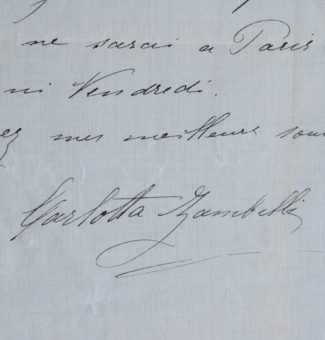 ne sarai a Paris
ni Vendredi.
mes meilleurs sou
Carlotta Zambelli